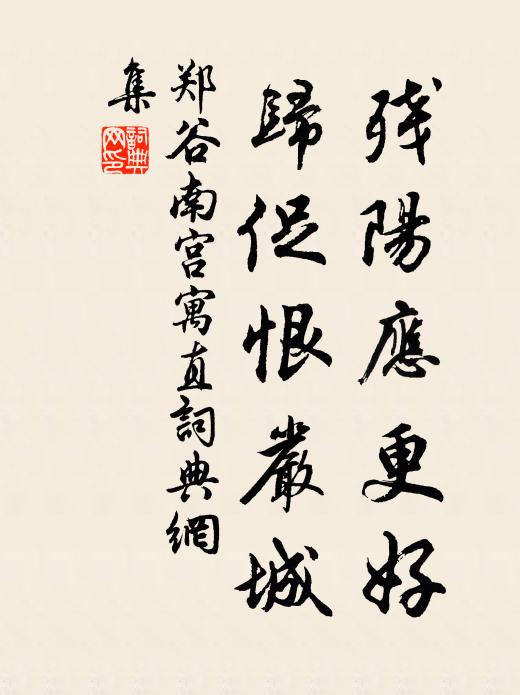 残陽應更好
歸促恨嚴城
郑谷南宫寓直詞典網
集
詞典網印